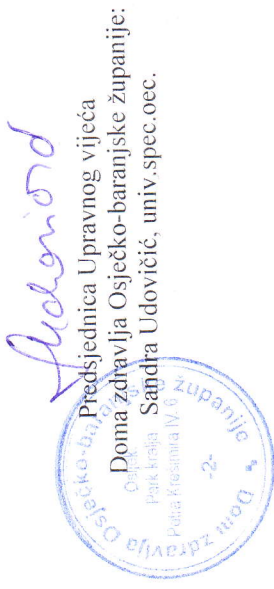 Predsjednica Upravnog vijeća
Doma zdravlja Osječko-baranjske županije:
Sandra Udovičić, univ.spec.oec.
Dom zdravlja Osječko-baranjske županije
Osijek
Park kralja
Petra Krešimira IV. 6
-2-